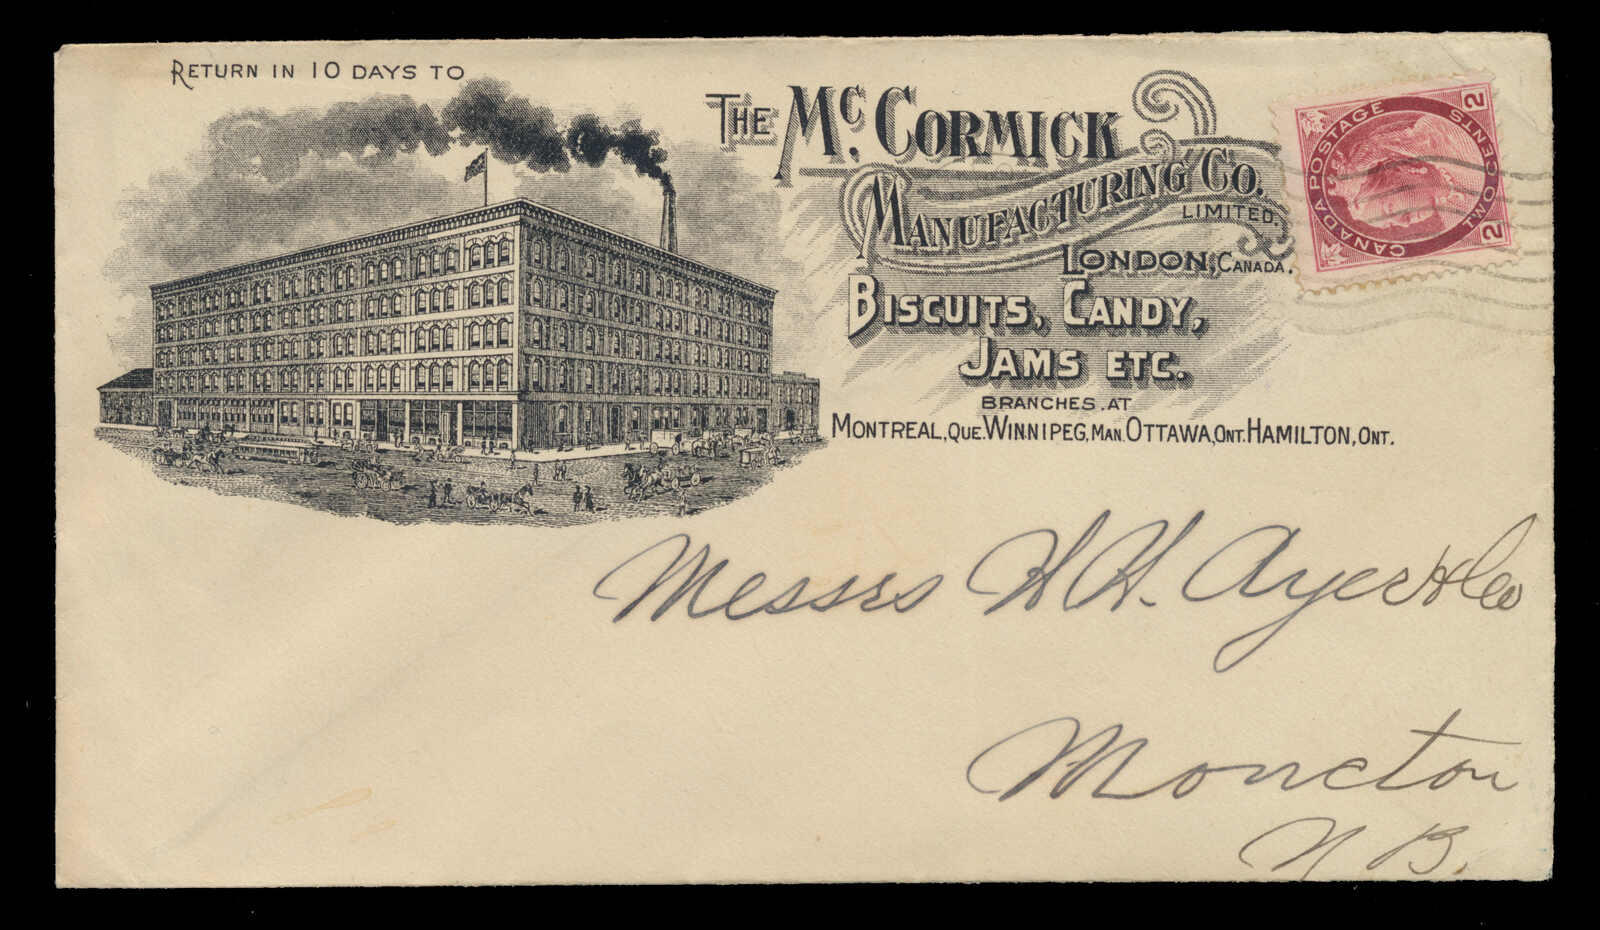 RETURN IN 10 DAYS TO
THE Mc. CORMICK
MANUFACTURING CO.
LIMITED.
LONDON, CANADA.
BISCUITS, CANDY,
JAMS ETC.
BRANCHES. AT
MONTREAL, QUE. WINNIPEG, MAN. OTTAWA, ONT. HAMILTON, ONT.
CANADA POSTAGE
2 TWO CENTS 2
Messrs H H. Ayer & Co
Moncton
N B.